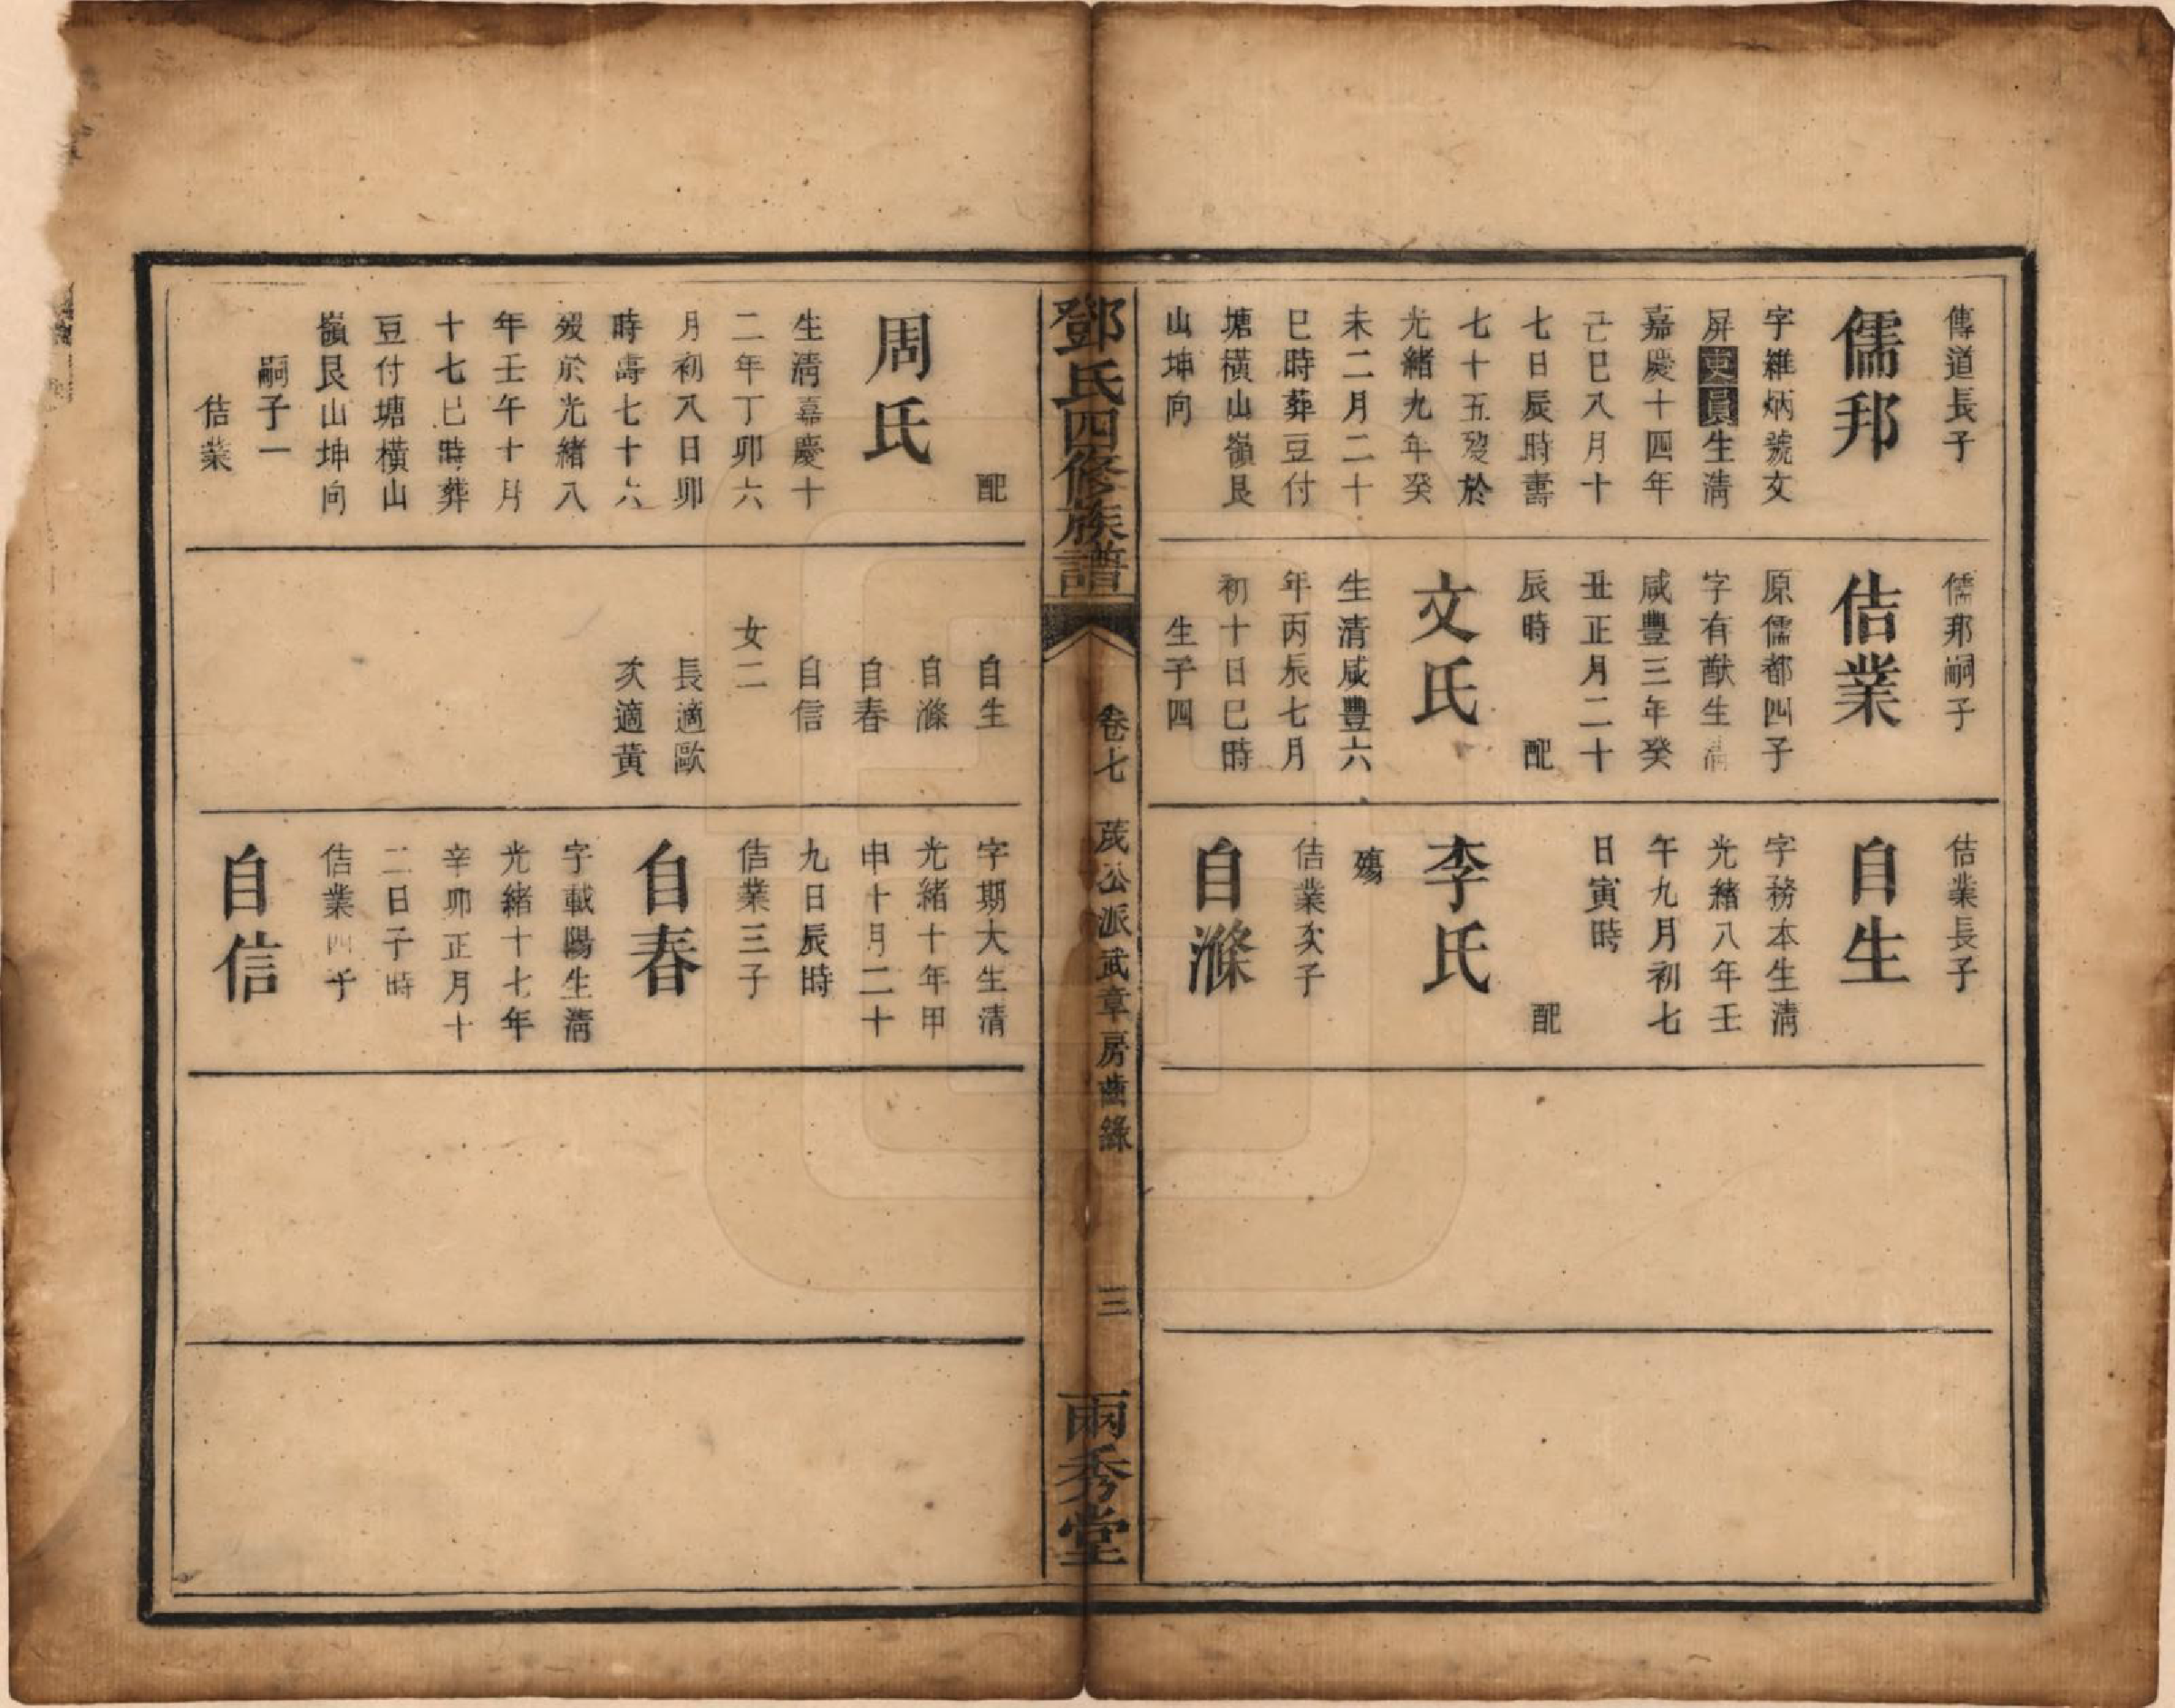 傳道長子
儒邦
字維炳號文
屏吏員生清
嘉慶十四年
己巳八月十
七日辰時壽
七十五歿於
光緒九年癸
未二月二十
巳時葬豆付
塘橫山嶺艮
山坤向
儒邦嗣子
佶業
原儒都四子
字有猷生清
咸豐三年癸
丑正月二十
辰時 配
文氏
生清咸豐六
年丙辰七月
初十日巳時
生子四
佶業長子
自生
字務本生清
光緒八年壬
午九月初七
日寅時
配
李氏
殤
佶業次子
自滌
鄧氏四修族譜
卷七 茂公派武章房齒錄
三
兩秀堂
配
周氏
生清嘉慶十
二年丁卯六
月初八日卯
時壽七十六
歿於光緒八
年壬午十月
十七巳時葬
豆付塘橫山
嶺艮山坤向
嗣子一
佶業
自生
自滌
自春
自信
女二
長適歐
次適黃
字期大生清
光緒十年甲
申十月二十
九日辰時
佶業三子
自春
字載陽生清
光緒十七年
辛卯正月十
二日子時
佶業四子
自信